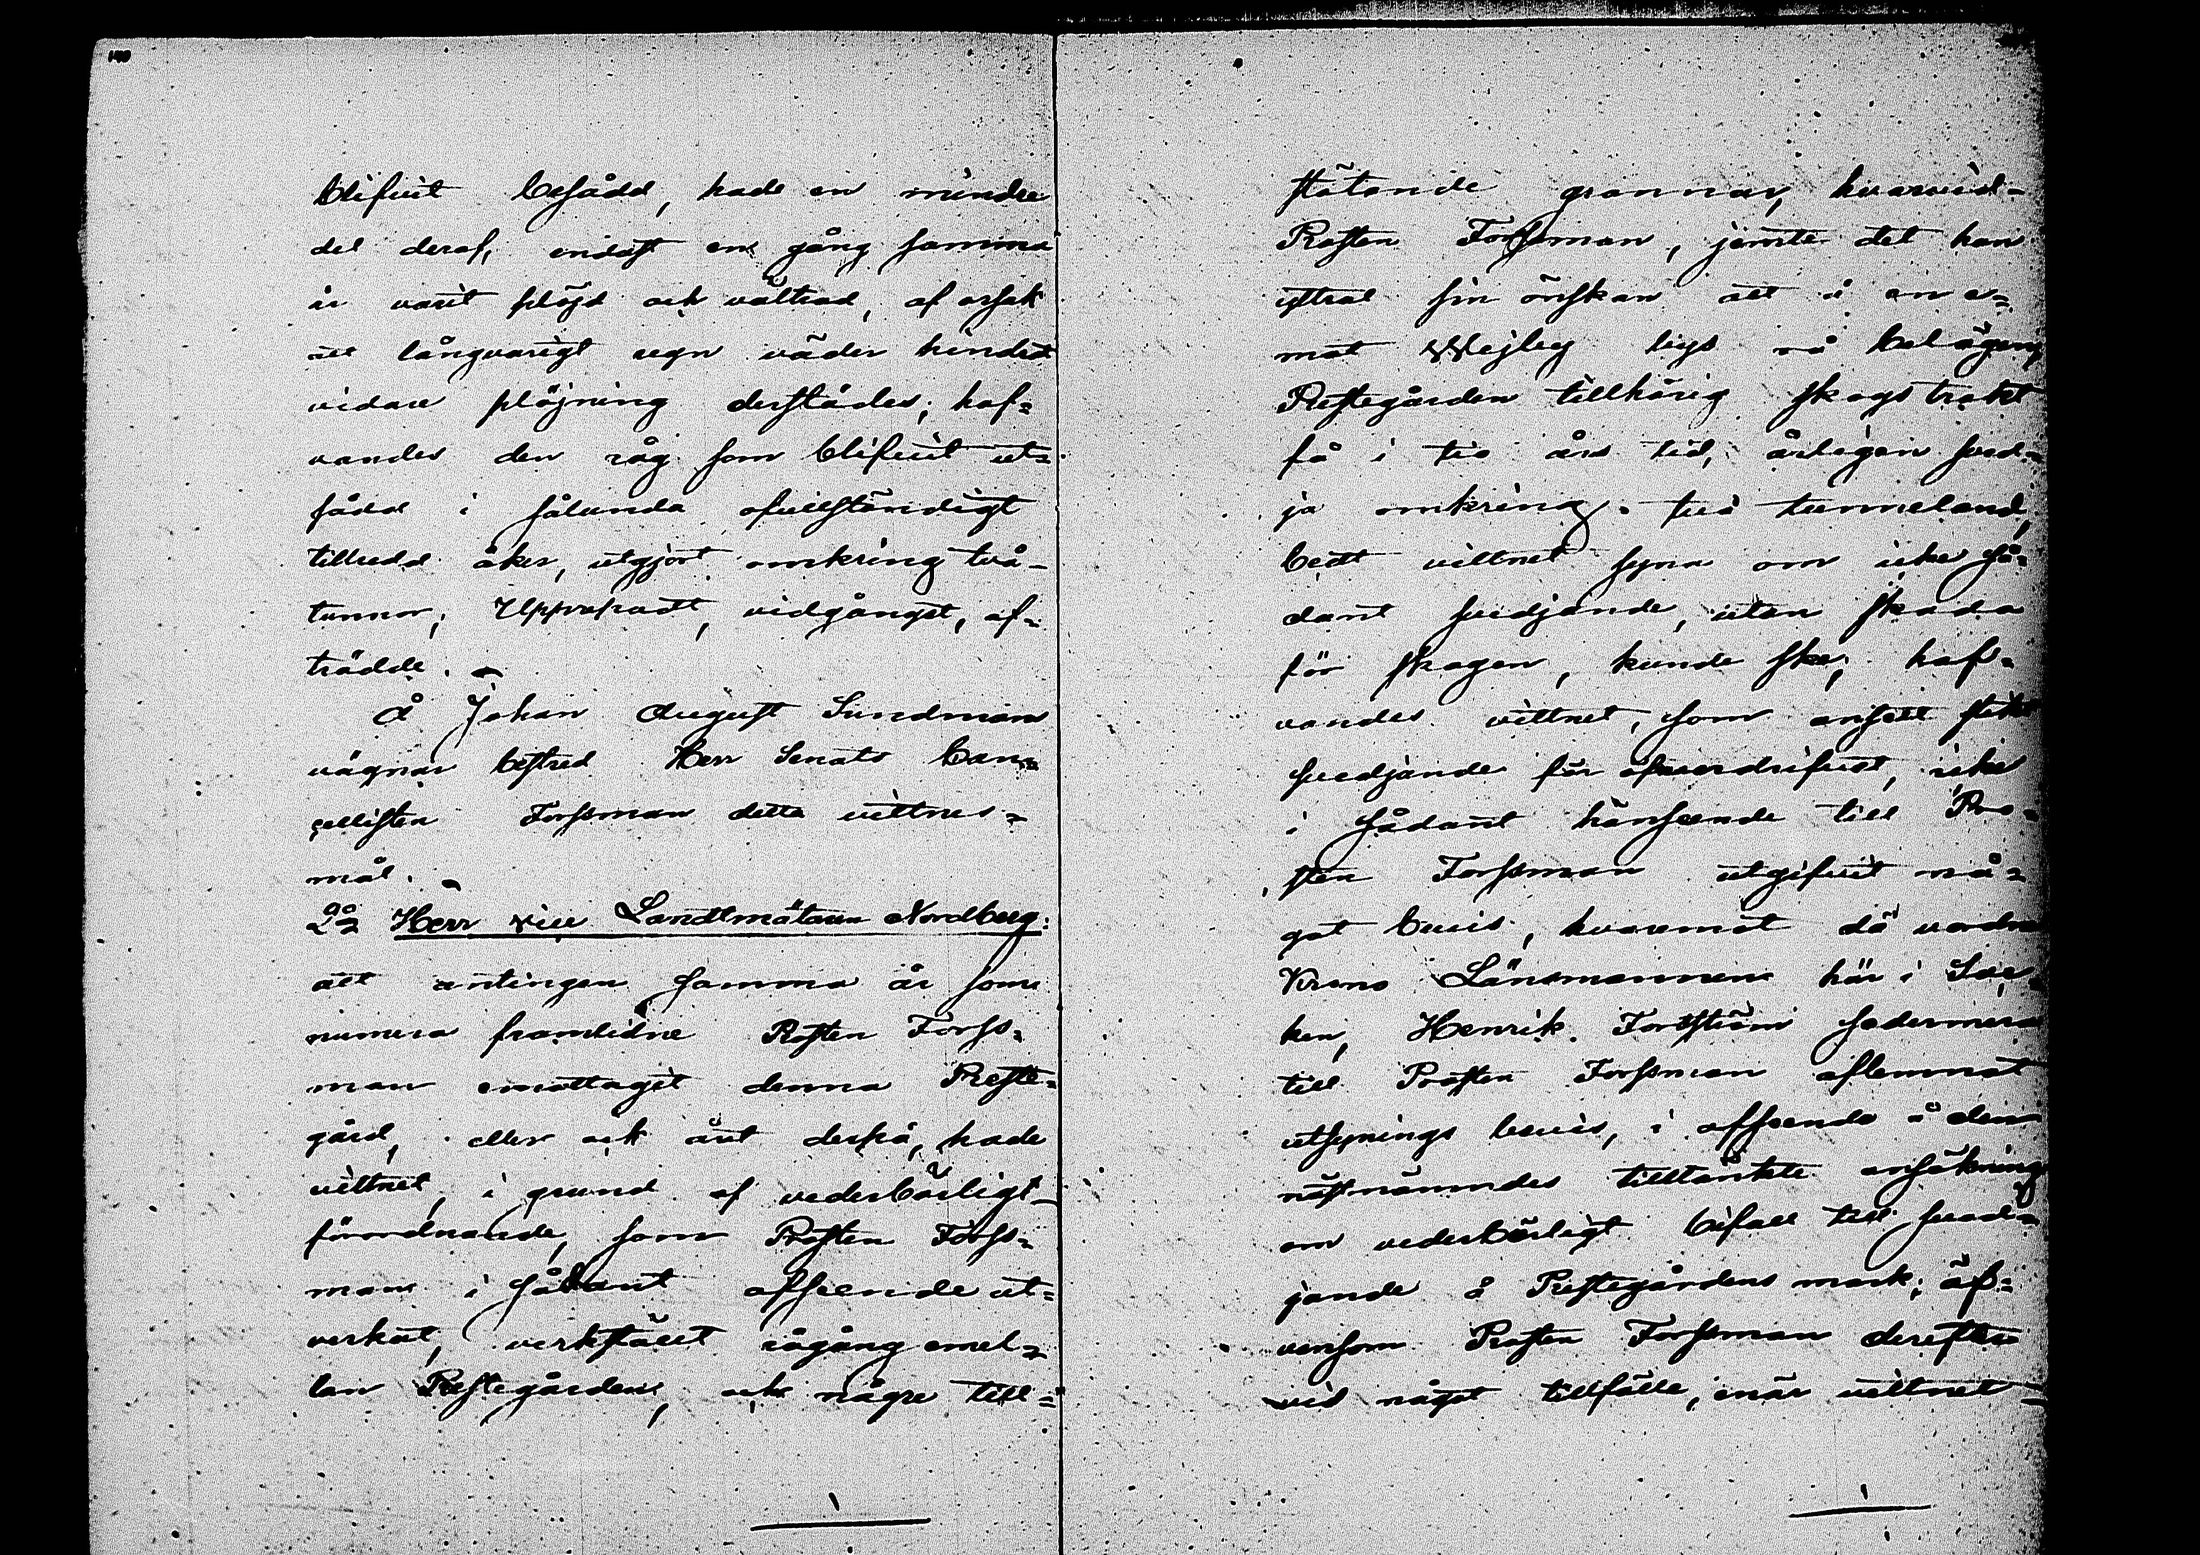 blifvit besådd, hade en mindre
del deraf, endast en gång samma
år varit plöjd och vältrad, af orsak
att långvarigt regn väder hindrat
vidare plöjning derstädes; haf=
vandes den råg som blifvit ut=
sådd i sålunda ofullständigt
tillredd åker, utgjort omkring två
tunnor; Uppropadt, vidgånget, af=
trädde.
Å Johan August Sundmans
vägnar bestred Herr Senats Can=
cellisten Forssman detta vittnes=
mål.
2o Herr vice Landtmätaren Nordberg:
att antingen samma år som
numera framlidne Prosten Forss=
man emottagit denna Preste=
gård, eller ock året derpå, hade
vittnet, i grund af vederbörligt
förordnande, som Prosten Forss=
man i sådant afseende ut=
verkat, verkstält rågång emel=
lan Prestegården, och några till=
stötande grannar, hvarvid
Prosten Forssman, jemte det han
yttrat sin önskan att å en e=
mot Wejby by's rå belägen,
Prestegården tillhörig skogstrakt
få i tio års tid, årligen sved=
ja omkring tu tunneland,
bedt vittnet syna om icke så=
dant svedjande, utan skada
för skogen, kunde ske; haf=
vandes vittnet, som ansett slikt
svedjande för öfverdrifvet, icke
i sådant hänseende till Pro=
sten Forssman utgifvit nå=
got bevis, hvaremot då vordne
Krono Länsmannen här i Soc=
ken, Henrik Forsström sedermera
till Prosten Forssman aflemnat
utsynings bevis, i afseende å den
nästnämndes tilltänkte ansökning
om vederbörligt bifall till sved=
jande å Prestegårdens mark; äf=
vensom Prosten Forssman derefter
vid något tillfälle, när vittnet